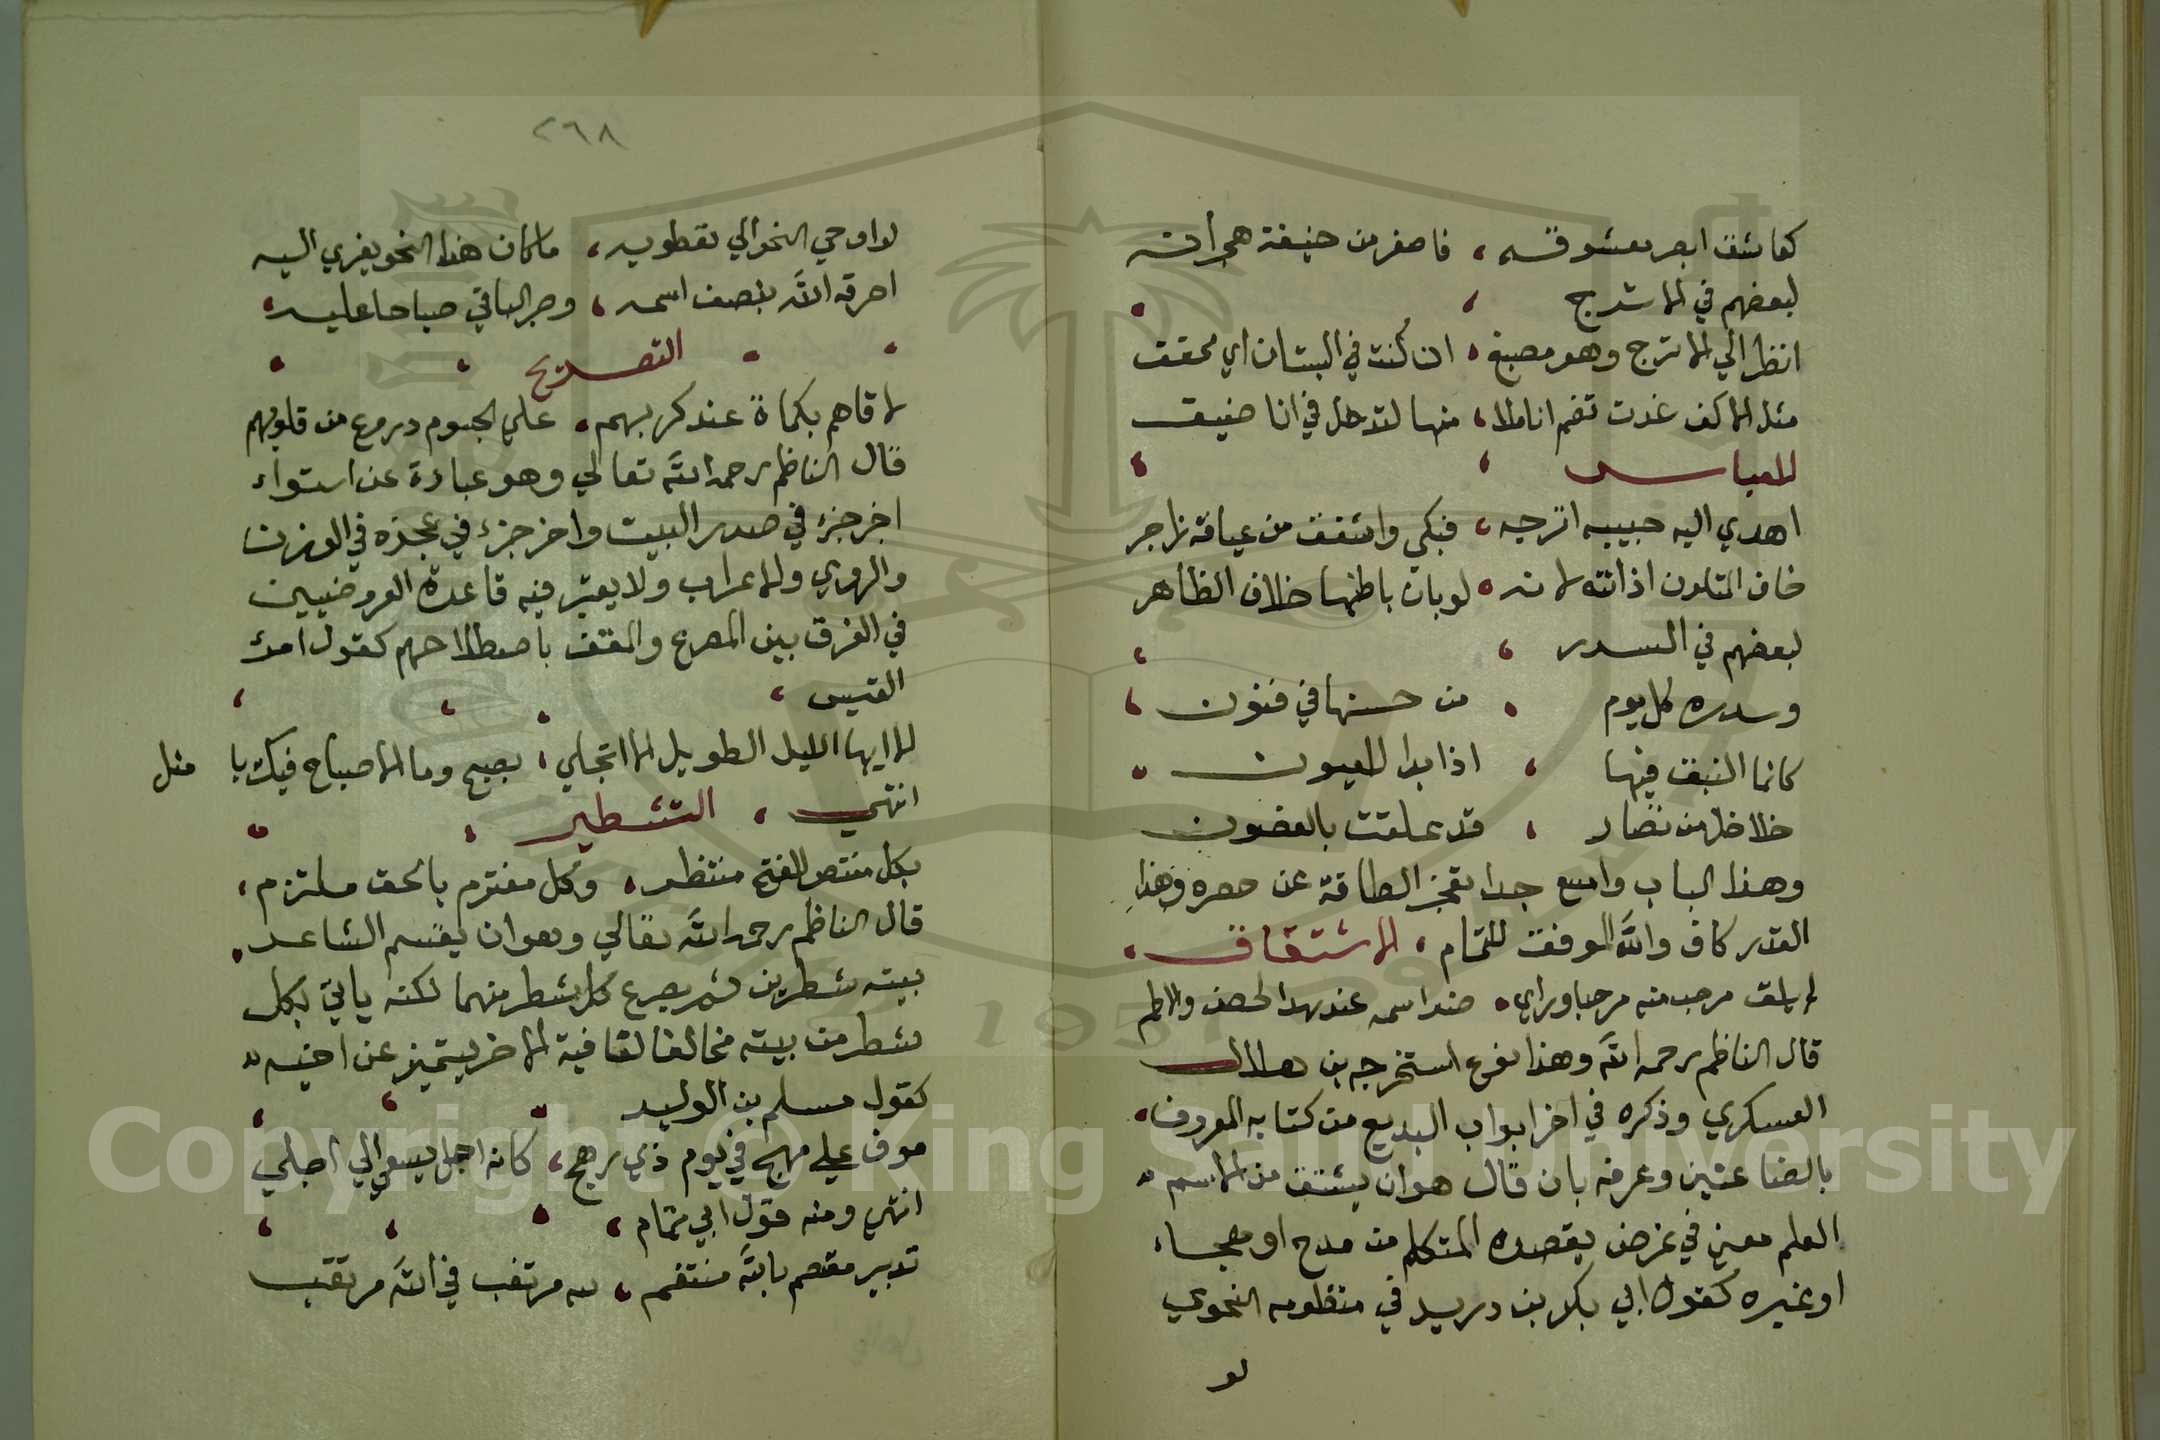 كعاشق ابصر معشوقه ، فاصفر من خيفة هجرانه
لبعضهم في الاترج
انظر الي الاترج وهو مصبغ ، ان كنت في البستان اي محقق
مثل الاكف غدت تضم اناملا ، منها لتدخل في انا ضيق
للعباس
اهدي اليه حبيبه اترجه ، فبكي واشفق من عيافة زاجر
خاف التلون اذ اتته لانه ، لوبان باطنها خلاف الظاهر
لبعضهم في السدر
وسدره كل يوم ، من حسنها في فنون
كانما النبق فيها ، اذا بدا للعيون
خلاخل من نضار ، قد علقت بالغصون
وهذا الباب واسع جدا تعجز الطاقة عن حصره وهذا
القدر كاف والله الموفق للتمام ، الاشتقاق
لم يلق مرحب منه مرحبا وراي ، ضد اسمه عند هد الحصن والاطم
قال الناظم رحمه الله وهذا نوع استخرجه بن هلال
العسكري وذكره في اخر ابواب البديع من كتابه المعروف
بالصناعتين وعرفه بان قال هو ان يشتق من الاسم
العلم معني في غرض يقصده المتكلم من مدح او هجاء
او غيره كقول ابي بكر بن دريد في منظومه النحوي
لو
٢٦٨
لو اوحي النحو الي نفطويه ، ما كان هذا النحو يغري اليه
احرقه الله بنصف اسمه ، وصير الباقي صياحا عليه
التصريع
لاقاهم بكماة عند كربهم ، علي الجسوم دروع من قلوبهم
قال الناظم رحمه الله تعالي وهو عبارة عن استواء
اخر جزء في صدر البيت واخر جزء في عجزه في الوزن
والروي والاعراب ولا يعتبر فيه قاعدة العروضيين
في الفرق بين المصرع والمقفي باصطلاحهم كقول امرئ
القيس
الا ايها الليل الطويل الا انجلي ، بصبح وما الاصباح فيك با مثل
انتهي ، التشطير
بكل منتصر للفتح منتظر ، وكل معتزم بالحق ملتزم
قال الناظم رحمه الله تعالي وهو ان يقسم الشاعر
بيته شطرين ثم يصرع كل شطر منهما لكنه ياتي بكل
شطر من بيته مخالفا لقافية الاخر ليتميز عن اخيه
كقول مسلم بن الوليد
موف علي مهج في يوم ذي رهج ، كانه اجل يسعي الي اجلي
انتهي ومنه قول ابي تمام
تدبير معتصم بالله منتقم ، لله مرتغب في الله مرتقب